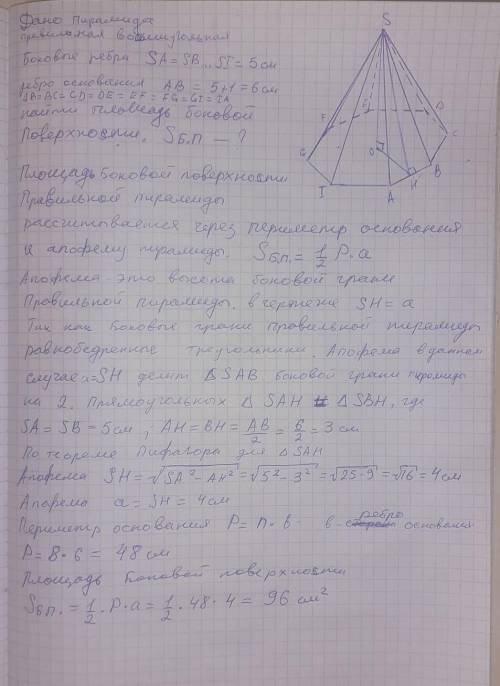 Дано пирамида
правильная восьмиугольная
Боковые ребра SA = SB .. SI = 5 см
ребро основания AB = 5+1 = 6 см
AB=BC=CD=DE=EF=FG=GI=IA
найти площадь боковой
Поверхности. Sб.п. — ?
Площадь Боковой поверхности
Правильной пирамиды
рассчитывается через периметр основания
и апофему пирамиды. Sб.п. = 1/2 P·a
Апофема - это высота боковой грани
Правильной пирамиды. в чертеже SH = a
Так как Боковые грани правильной пирамиды
равнобедренные треугольники. Апофема в данном
случае a=SH делит ΔSAB боковой грани пирамиды
на 2. прямоугольных Δ SAH и Δ SBH, где
SA = SB = 5 см ; AH = BH = AB/2 = 6/2 = 3 см
По теореме Пифагора для ΔSAH
Апофема SH = √SA² - AH² = √5² - 3² = √25-9 = √16 = 4 см
Апофема a = SH = 4 см
Периметр основания P = n·в в - ребро основания
P = 8·6 = 48 см
Площадь Боковой поверхности
Sб.п. = 1/2 · P·a = 1/2 · 48·4 = 96 см²
S
F
E
D
C
G
O
B
H
I
A